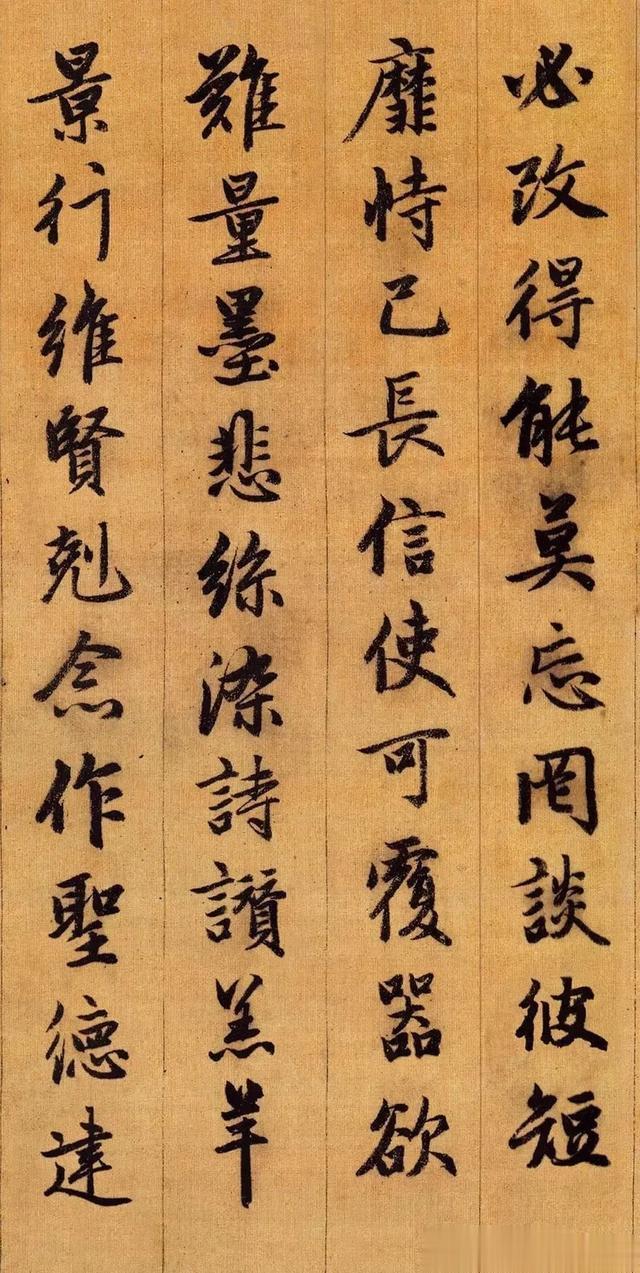 必改得能莫忘罔談彼短
靡恃己長信使可覆器欲
難量墨悲絲染詩讚羔羊
景行維賢剋念作聖德建